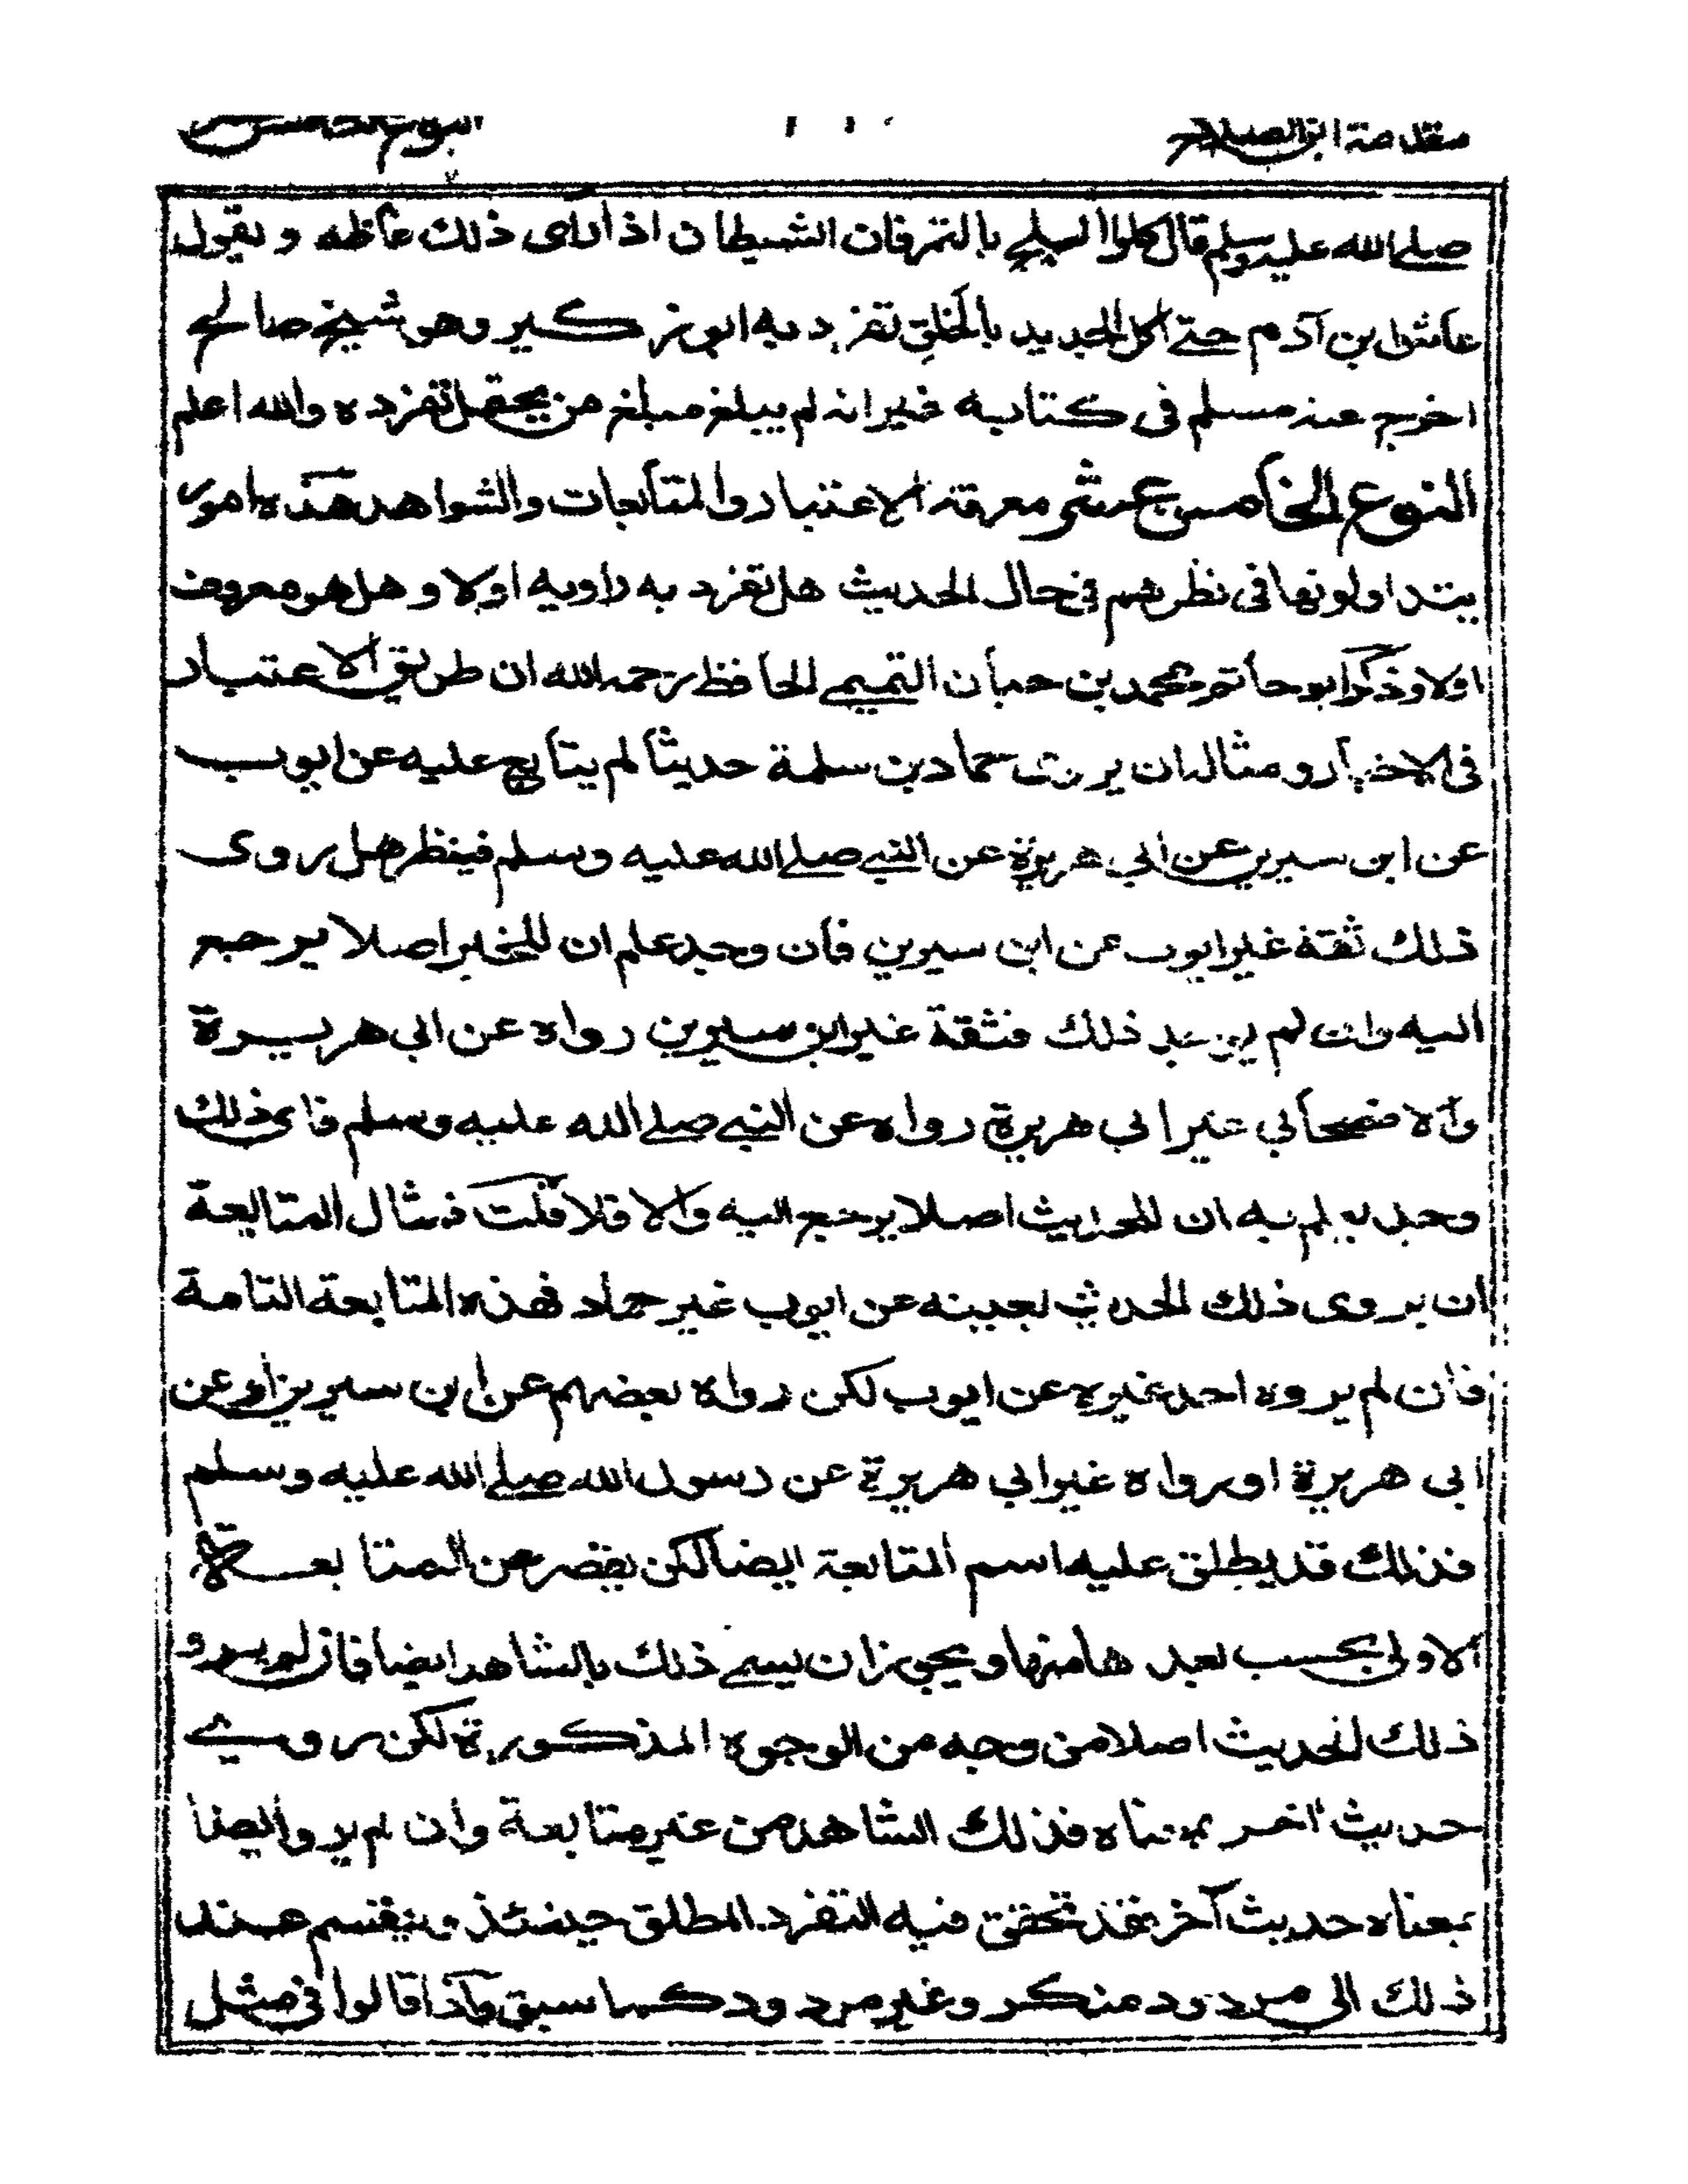 مقدمة ابن الصلاح
النوع الخامس عشر
صلى الله عليه وسلم قال كلوا البلح بالتمر فان الشيطان اذا راى ذلك غاظه ويقول
عاش ابن آدم حتى اكل الجديد بالخلق تفرد به ابو زكير وهو شيخ صالح
اخرج عنه مسلم فى كتابه غير انه لم يبلغ مبلغ من يحتمل تفرده والله اعلم
النوع الخامس عشر معرفة الاعتبار والمتابعات والشواهد هذه امور
يتداولونها فى نظرهم فى حال الحديث هل تفرد به راويه اولا وهل هو معروف
اولا وذكر ابو حاتم محمد بن حبان التميمى الحافظ رحمه الله ان طريق الاعتبار
فى الاخبار ومثاله ان يروى حماد بن سلمة حديثا لم يتابع عليه عن ايوب
عن ابن سيرين عن ابي هريرة عن النبى صلى الله عليه وسلم فينظر هل روى
ذلك ثقة غير ايوب عن ابن سيرين فان وجد علم ان للخبر اصلا يرجع
اليه وان لم يوجد ذلك فثقة غير ابن سيرين رواه عن ابي هريرة
والا فصحابي غير ابي هريرة رواه عن النبى صلى الله عليه وسلم فاى ذلك
وجد يعلم به ان للحديث اصلا يرجع اليه والا فلا قلت فمثال المتابعة
ان يروى ذلك الحديث بعينه عن ايوب غير حماد فهذه المتابعة التامة
فان لم يروه احد غيره عن ايوب لكن رواه بعضهم عن ابن سيرين او عن
ابى هريرة او رواه غير ابي هريرة عن رسول الله صلى الله عليه وسلم
فذلك قد يطلق عليه اسم المتابعة ايضا لكن يقصر عن المتابعة
الاولى بحسب بعدها منها ويجوز ان يسمى ذلك بالشاهد ايضا فان لم يرو
ذلك الحديث اصلا من وجه من الوجوه المذكورة لكن روي
حديث اخر بمعناه فذلك الشاهد من غير متابعة وان لم يرو ايضا
بمعناه حديث آخر فقد تحقق فيه التفرد المطلق حينئذ وينقسم عند
ذلك الى مردود منكر وغير مردود كما سبق واذا قالوا فى مثل